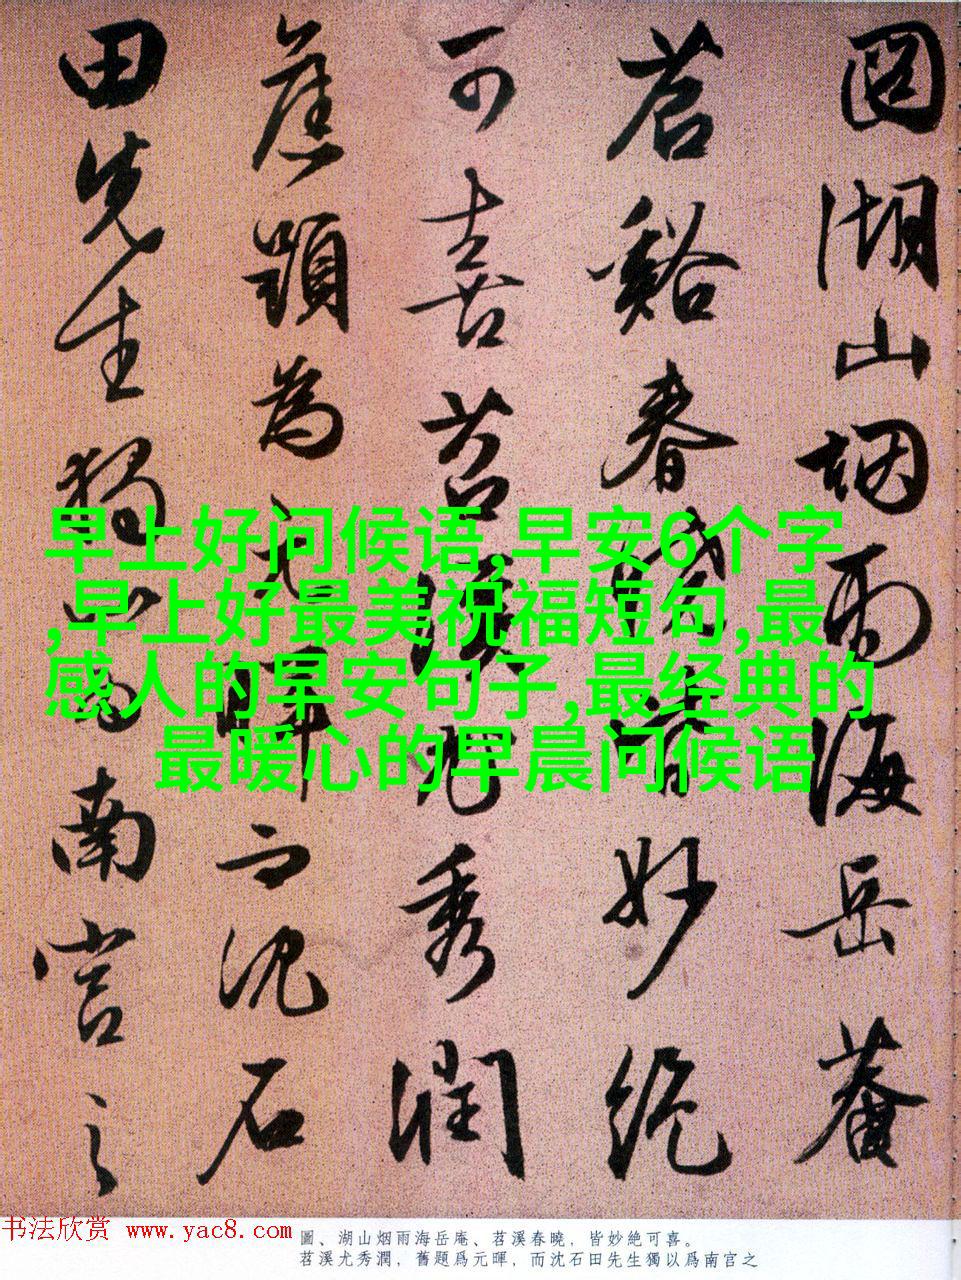 圖湖山烟雨海岳菴
苕谿春曉皆妙絶
可喜苕谿尤秀潤
舊題為元暉而沈石
田先生獨以為南宮之
早上好问候语,早安6个字
,早上好最美祝福短句,最
感人的早安句子,最经典的
最暖心的早晨问候语
书法欣赏 www.yac8.com
圖、湖山烟雨海岳庵、苕溪春曉，皆妙絶可喜。
苕溪尤秀潤，舊題爲元暉，而沈石田先生獨以爲南宫之